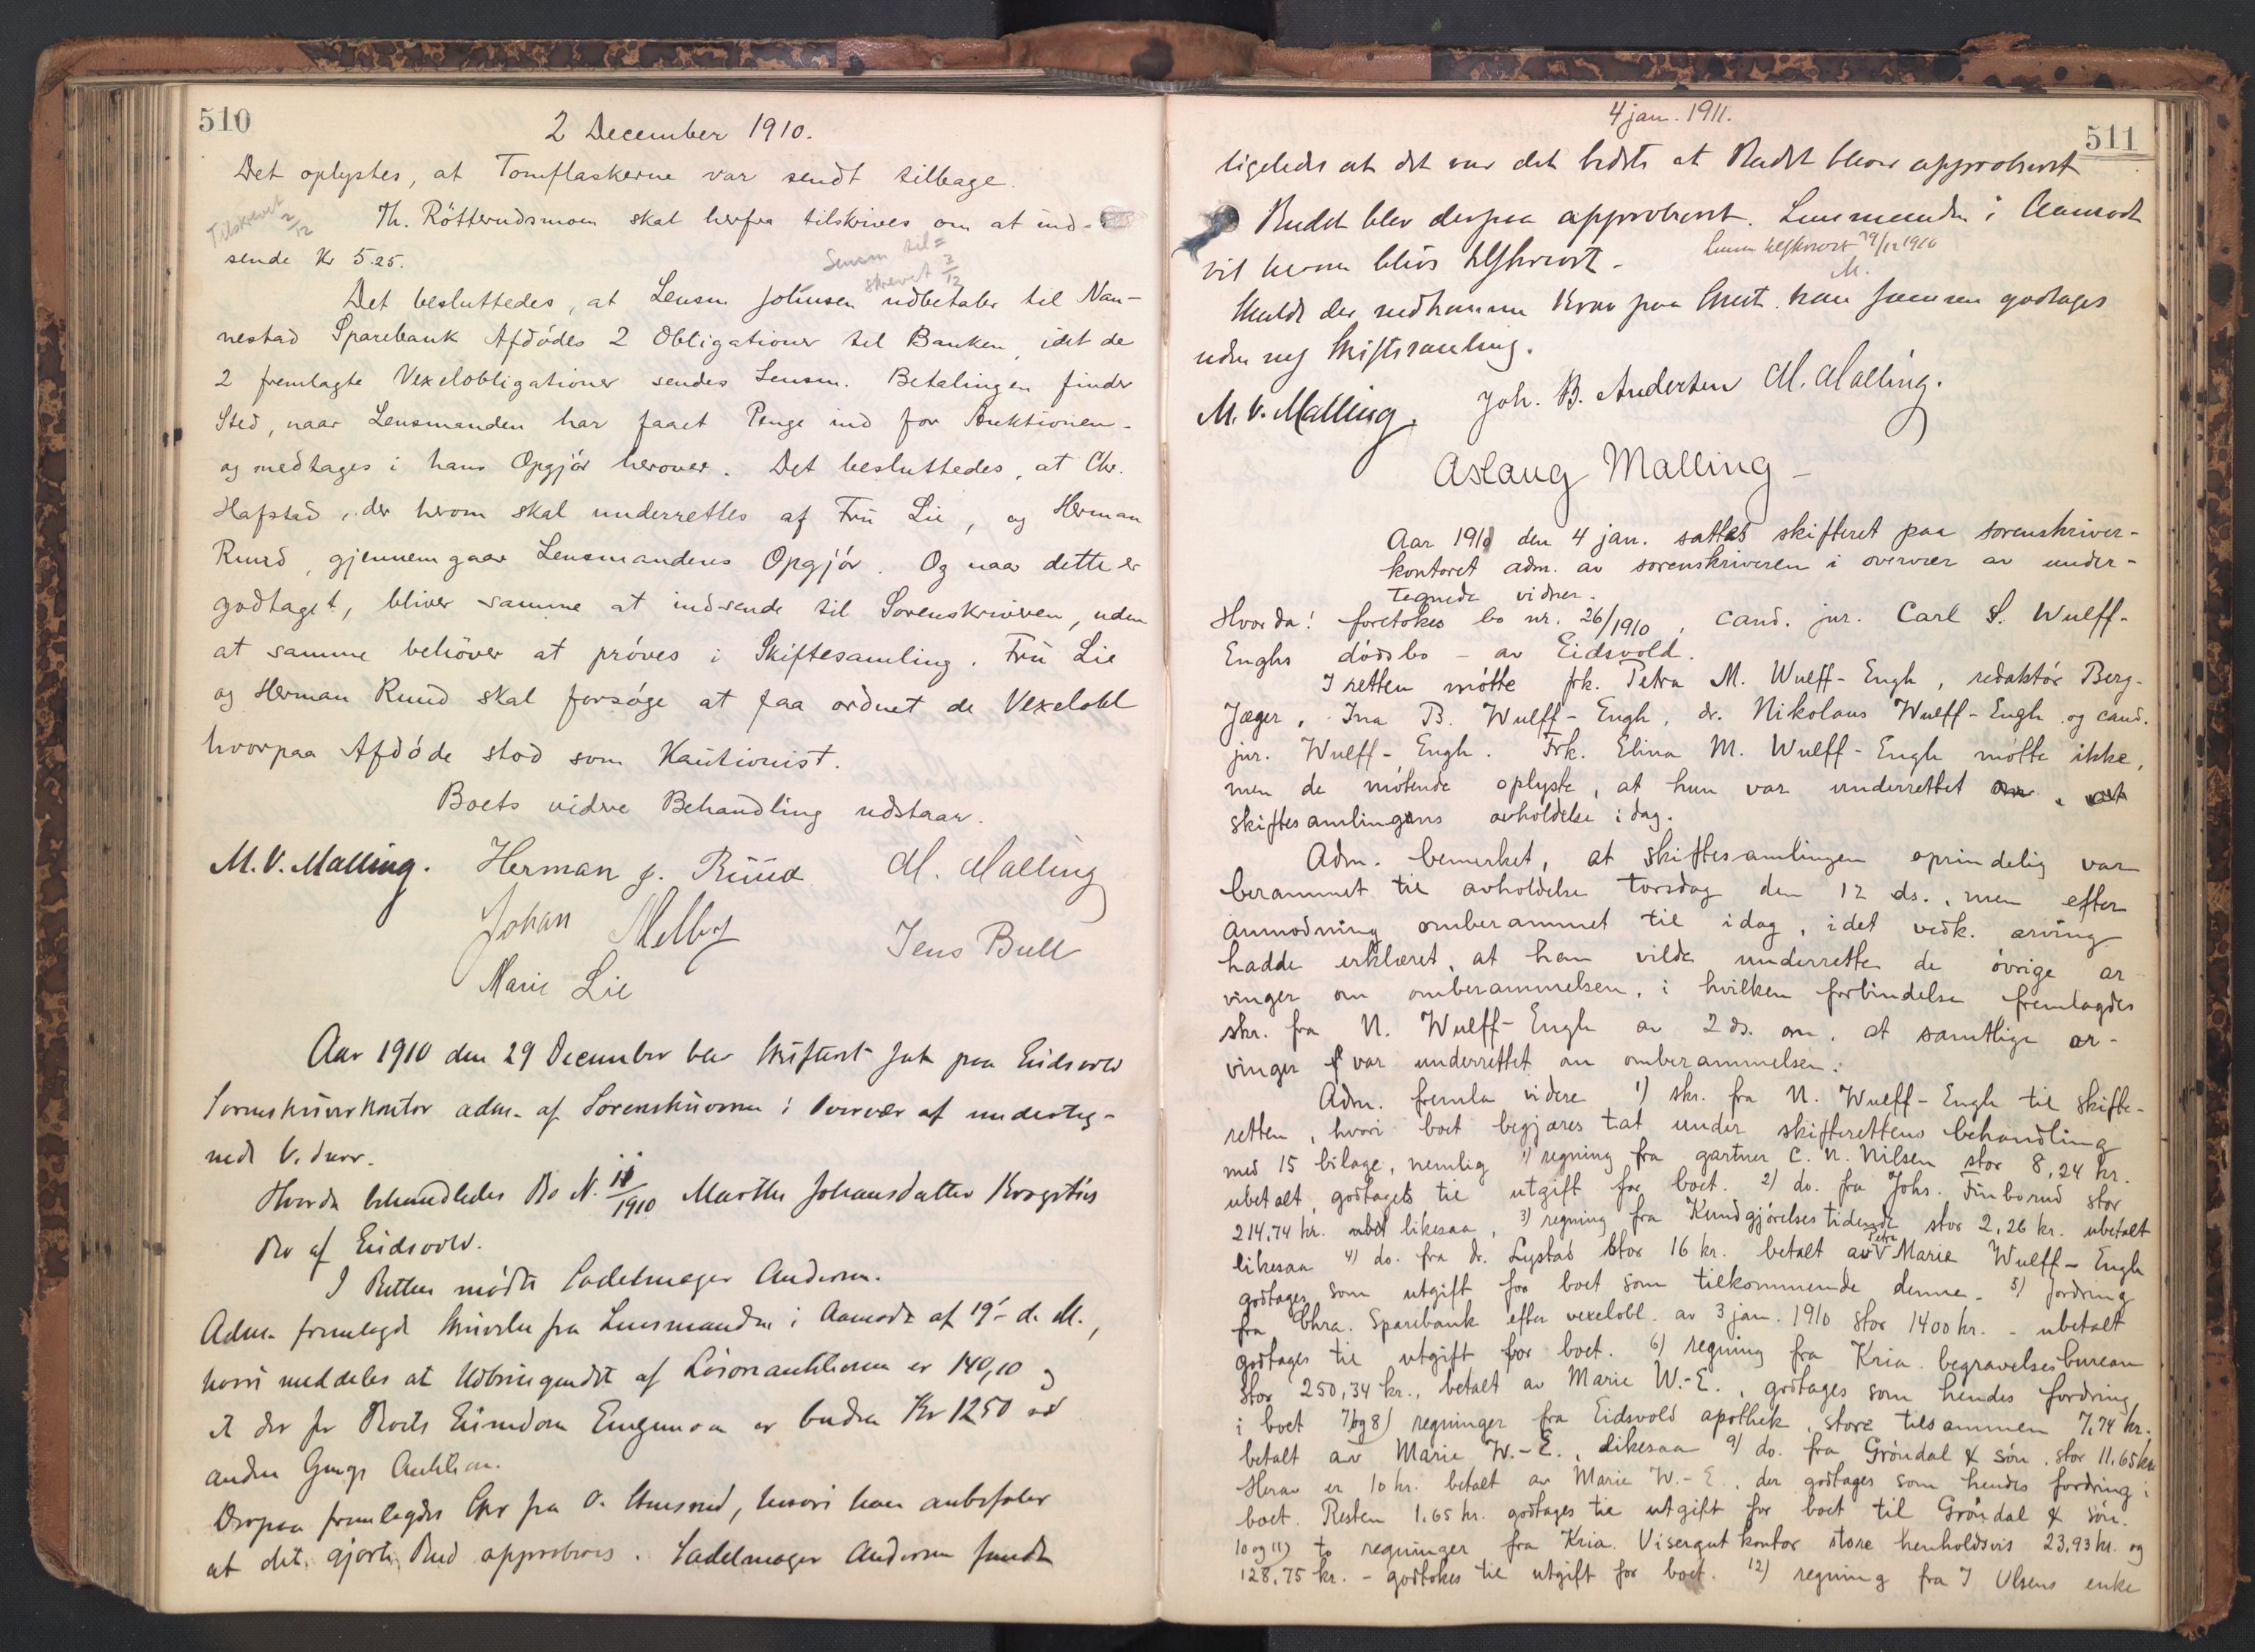 510
2 December 1910.
Det oplystes, at Tomflaskerne var sendt tilbage.
Tilskrevet 2/12
Th. Rötterudsmoen skal herfra tilskrives om at ind-
sende Kr 5.25.
Lensm til=
skrevet 3/12
Det besluttedes, at Lensm Johnsen udbetaler til Nan-
nestad Sparebank Afdödes 2 Obligationer til Banken, idet de
2 fremlagte Vexelobligationer sendes Lensm. Betalingen finder
Sted, naar Lensmanden har faaet Penge ind for Auktionen -
og medtages i hans Opgjör herover. Det besluttedes, at Chr.
Hafstad, der herom skal underrettes af Fru Lie, og Herman
Ruud, gjennemgaar Lensmandens Opgjör. Og naar dette er
godtaget, bliver samme at indsende til Sorenskriveren, uden
at samme behöver at pröves i Skiftesamling. Fru Lie
og Herman Ruud skal forsöge at faa ordnet de Vexelobl
hvorpaa Afdöde stod som Kautionist.
Boets videre Behandling udstaar.
M. V. Malling. Herman J. Ruud M. Malling
Johan Melby Jens Bull
Marie Lie
Aar 1910 den 29 December blev Skifteret sat paa Eidsvold
Sorenskriverkontor adm. af Sorenskriveren i Overvær af underteg-
nede Vidner.
Hvorda behandledes Bo N. 11/1910 Marthe Johansdatter
Bo af Eidsvold.
I Retten mödte Sadelmager Andersen.
Adm. fremlagde Skrivelse fra Lensmanden i Aamodt af 19' d. M.,
hvori meddeles at Udbringendet af Lösöreauktionen er 140,10 og
at der for Boets Eiendom Engemoen er buden Kr 1250 ved
anden Gangs Auktion.
Derpaa fremlagdes Skr fra O. , hvori han anbefaler
at det gjorte Bud approberes. Sadelmager Andersen fandt
4 jan. 1911.
511
ligeledes at det var det bedste at Budet blev approberet
Budet blev derpaa approberet. Lensmanden i Aamodt
vil herom blive tilskrevet -
Lensm tilskrevet 29/12 1910
M.
Skulde der nedkomme Krav paa kan samme godtages
uden ny Skiftesamling.
M. V. Malling. Joh. B. Andersen M. Malling.
Aslaug Malling -
Aar 1911 den 4 jan. sattes skifteret paa sorenskriver-
kontoret adm. av sorenskriveren i overvær av under-
tegnede vidner.
Hvorda: foretokes bo nr. 26/1910, cand. jur. Carl S. Wulff-
Enghs dödsbo - av Eidsvold.
I retten mötte frk. Petra M. Wulff-Engh, redaktör Berg-
Jæger, Ina B. Wulff-Engh, dr. Nikolaus Wulff-Engh og cand.
jur. Wulff-Engh. Frk. Elina M. Wulff-Engh mötte ikke,
men de mötende oplyste, at hun var underrettet om
skiftesamlingens avholdelse idag.
Adm. bemerket, at skiftesamlingen oprindelig var
berammet til avholdelse torsdag den 12 ds., men efter
anmodning omberammet til idag, idet vedk. arving
hadde erklæret, at han vilde underrette de övrige ar-
vinger om omberammelsen, i hvilken forbindelse fremlagdes
skr. fra N. Wulff-Engh av 2 ds. om, at samtlige ar-
vinger var underrettet om omberammelsen.
Adm. fremla videre 1) skr. fra N. Wulff-Engh til skifte-
retten, hvori boet begjæres tat under skifterettens behandling
med 15 bilage, nemlig 1) regning fra gartner C. N. Nilsen stor 8,24 kr.
ubetalt, godtages til utgift for boet. 2) do. fra Johs. Finborud stor
214,74 kr. likesaa, 3) regning fra Kundgjörelsestidende stor 2,26 kr. ubetalt
likesaa 4) do. fra dr. Lystad stor 16 kr. betalt av Petra Marie Wulff-Engh
godtages som utgift for boet som tilkommende denne. 5) fordring
fra Chra. Sparebank efter vexelobl. av 3 jan. 1910 stor 1400 kr. - ubetalt
godtages til utgift for boet. 6) regning fra Kria. begravelsesbureau
stor 250,34 kr., betalt av Marie W.-E., godtages som hendes fordring
i boet 7) og 8) regninger fra Eidsvold apothek, store tilsammen 7,74 kr.
betalt av Marie W.-E., likesaa 9) do. fra Gröndal & sön, stor 11,65 kr.
Herav er 10 kr. betalt av Marie W.-E., der godtages som hendes fordring i
boet. Resten 1,65 kr. godtages til utgift for boet til Gröndal & sön.
10 og 11) to regninger fra Kria. Visergut kontor store henholdsvis 23,93 kr. og
128,75 kr. - godtokes til utgift for boet. 12) regning fra J Olsens enke